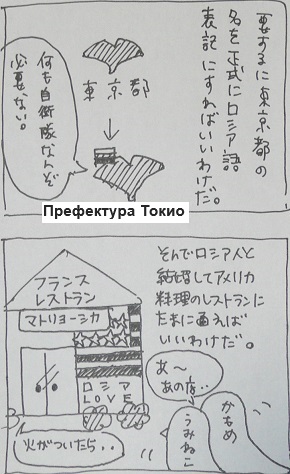 要するに東京都の
名を正式にロシア語
表記にすればいいわけだ。
東京都
何も自衛隊なんぞ
必要ない。
Префектура Токио
そんでロシア人と
結婚してアメリカ
料理のレストランに
たまに通えば
いいわけだ。
フランス
レストラン
マトリョーシカ
ロシア
LOVE
あ〜
あのな・・
かもめ
うみねこ
火がついたら・・